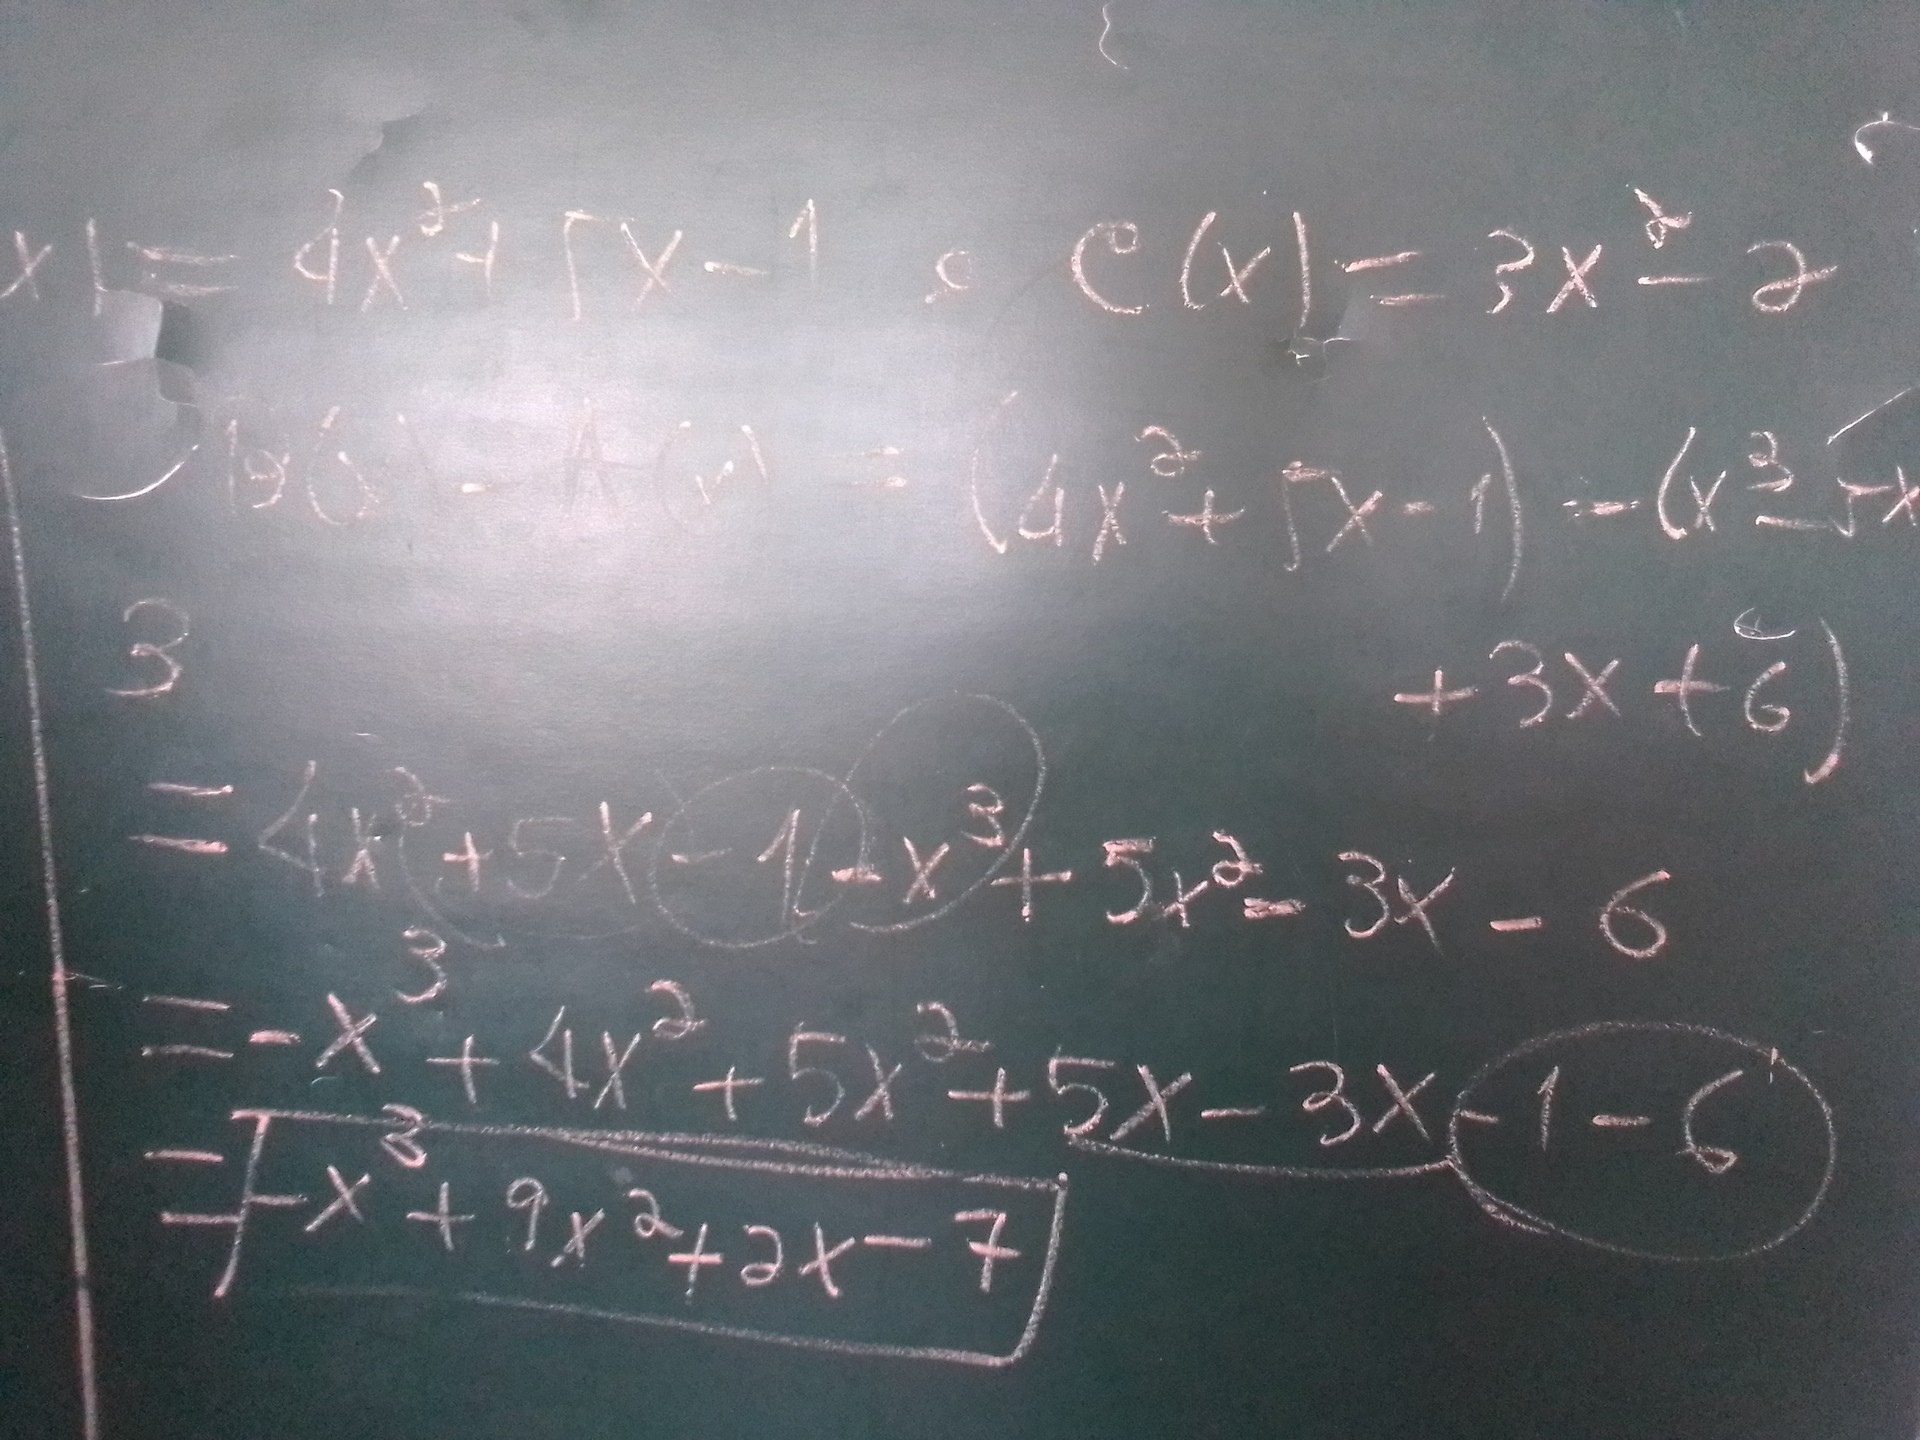 x) = 4x² + 5x - 1 e C(x) = 3x² - 2
B(x) - A(x) = (4x² + 5x - 1) - (x³ - 5x
+ 3x + 6)
3
= 4x² + 5x - 1 - x³ + 5x² - 3x - 6
= -x³ + 4x² + 5x² + 5x - 3x - 1 - 6
= -x³ + 9x² + 2x - 7